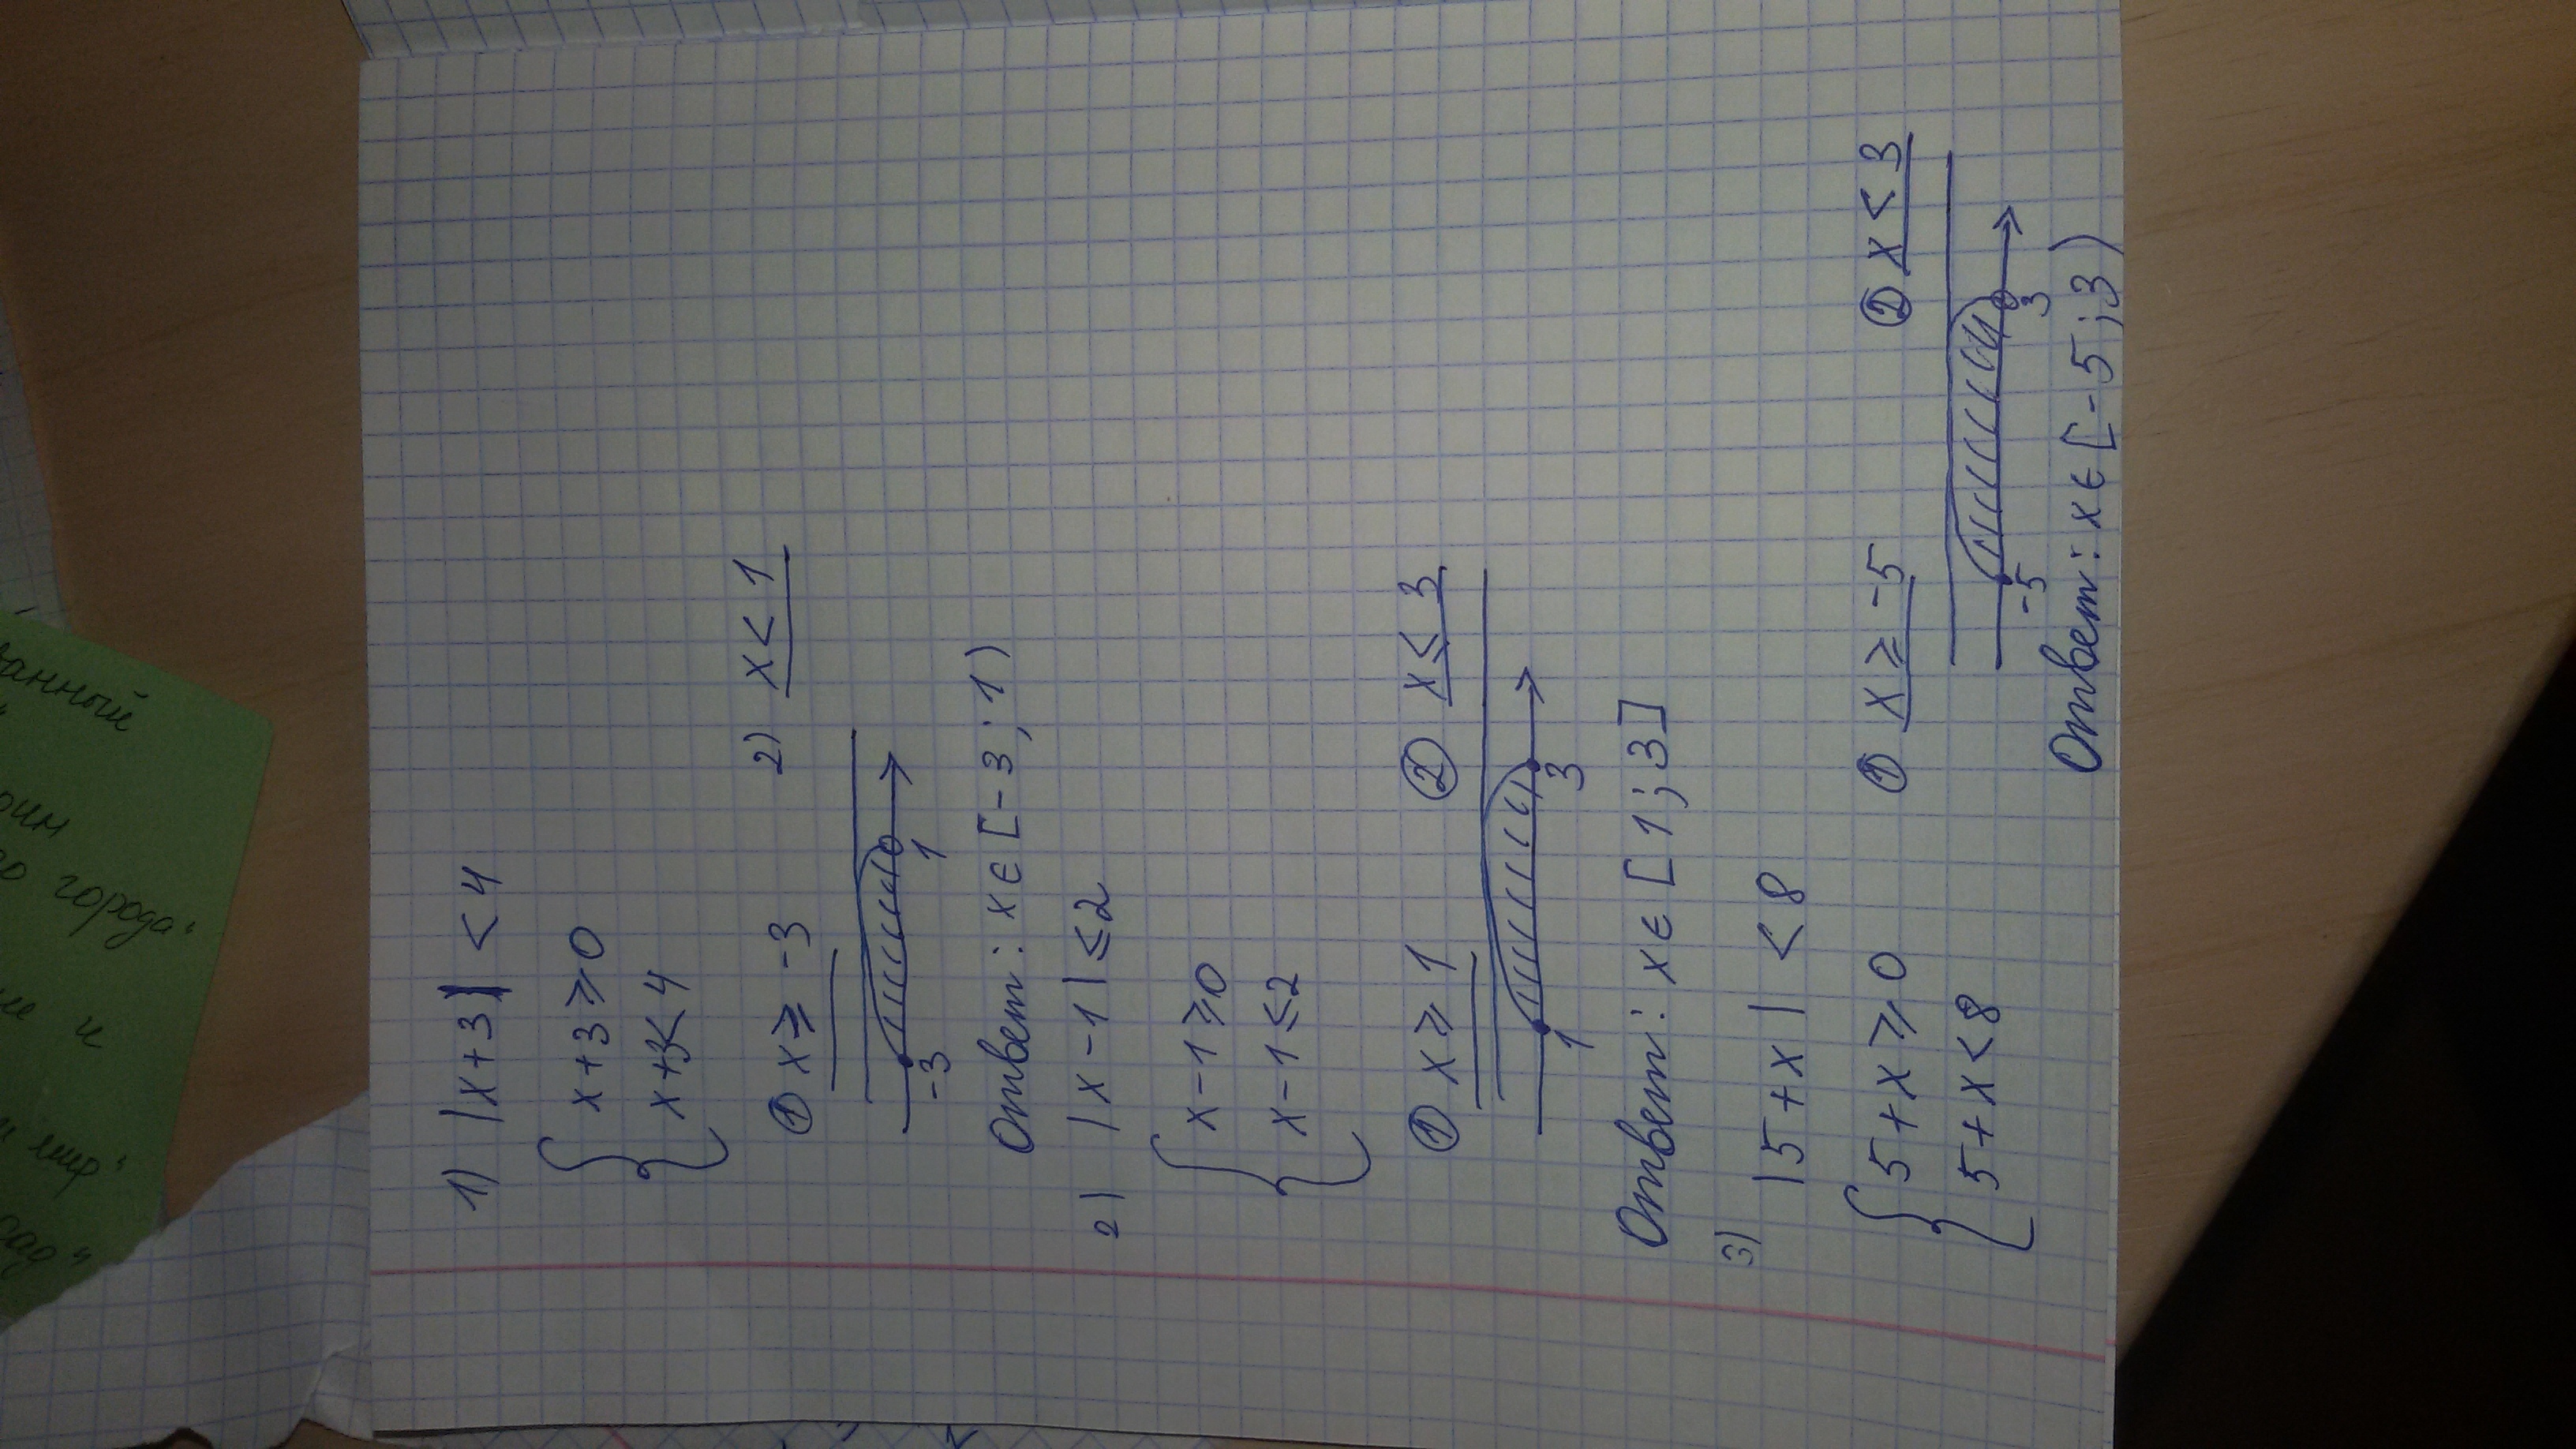 1) |x+3| <4
{ x+3⩾0
x+3<4
① x⩾ -3 2) x< 1
-3 1
Ответ: x∈[-3; 1)
2) |x-1|≤2
{ x-1⩾0
x-1≤2
① x⩾ 1 ② x≤ 3
1 3
Ответ: x∈[1;3]
3) |5+x| <8
{ 5+x⩾0
5+x<8
① x⩾-5 ② x<3
-5 3
Ответ: x∈[-5;3)
анный
го города"
и
мир"